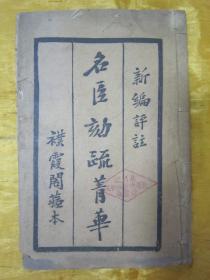 新編評註
名臣劾疏菁華
襟霞閣藏本